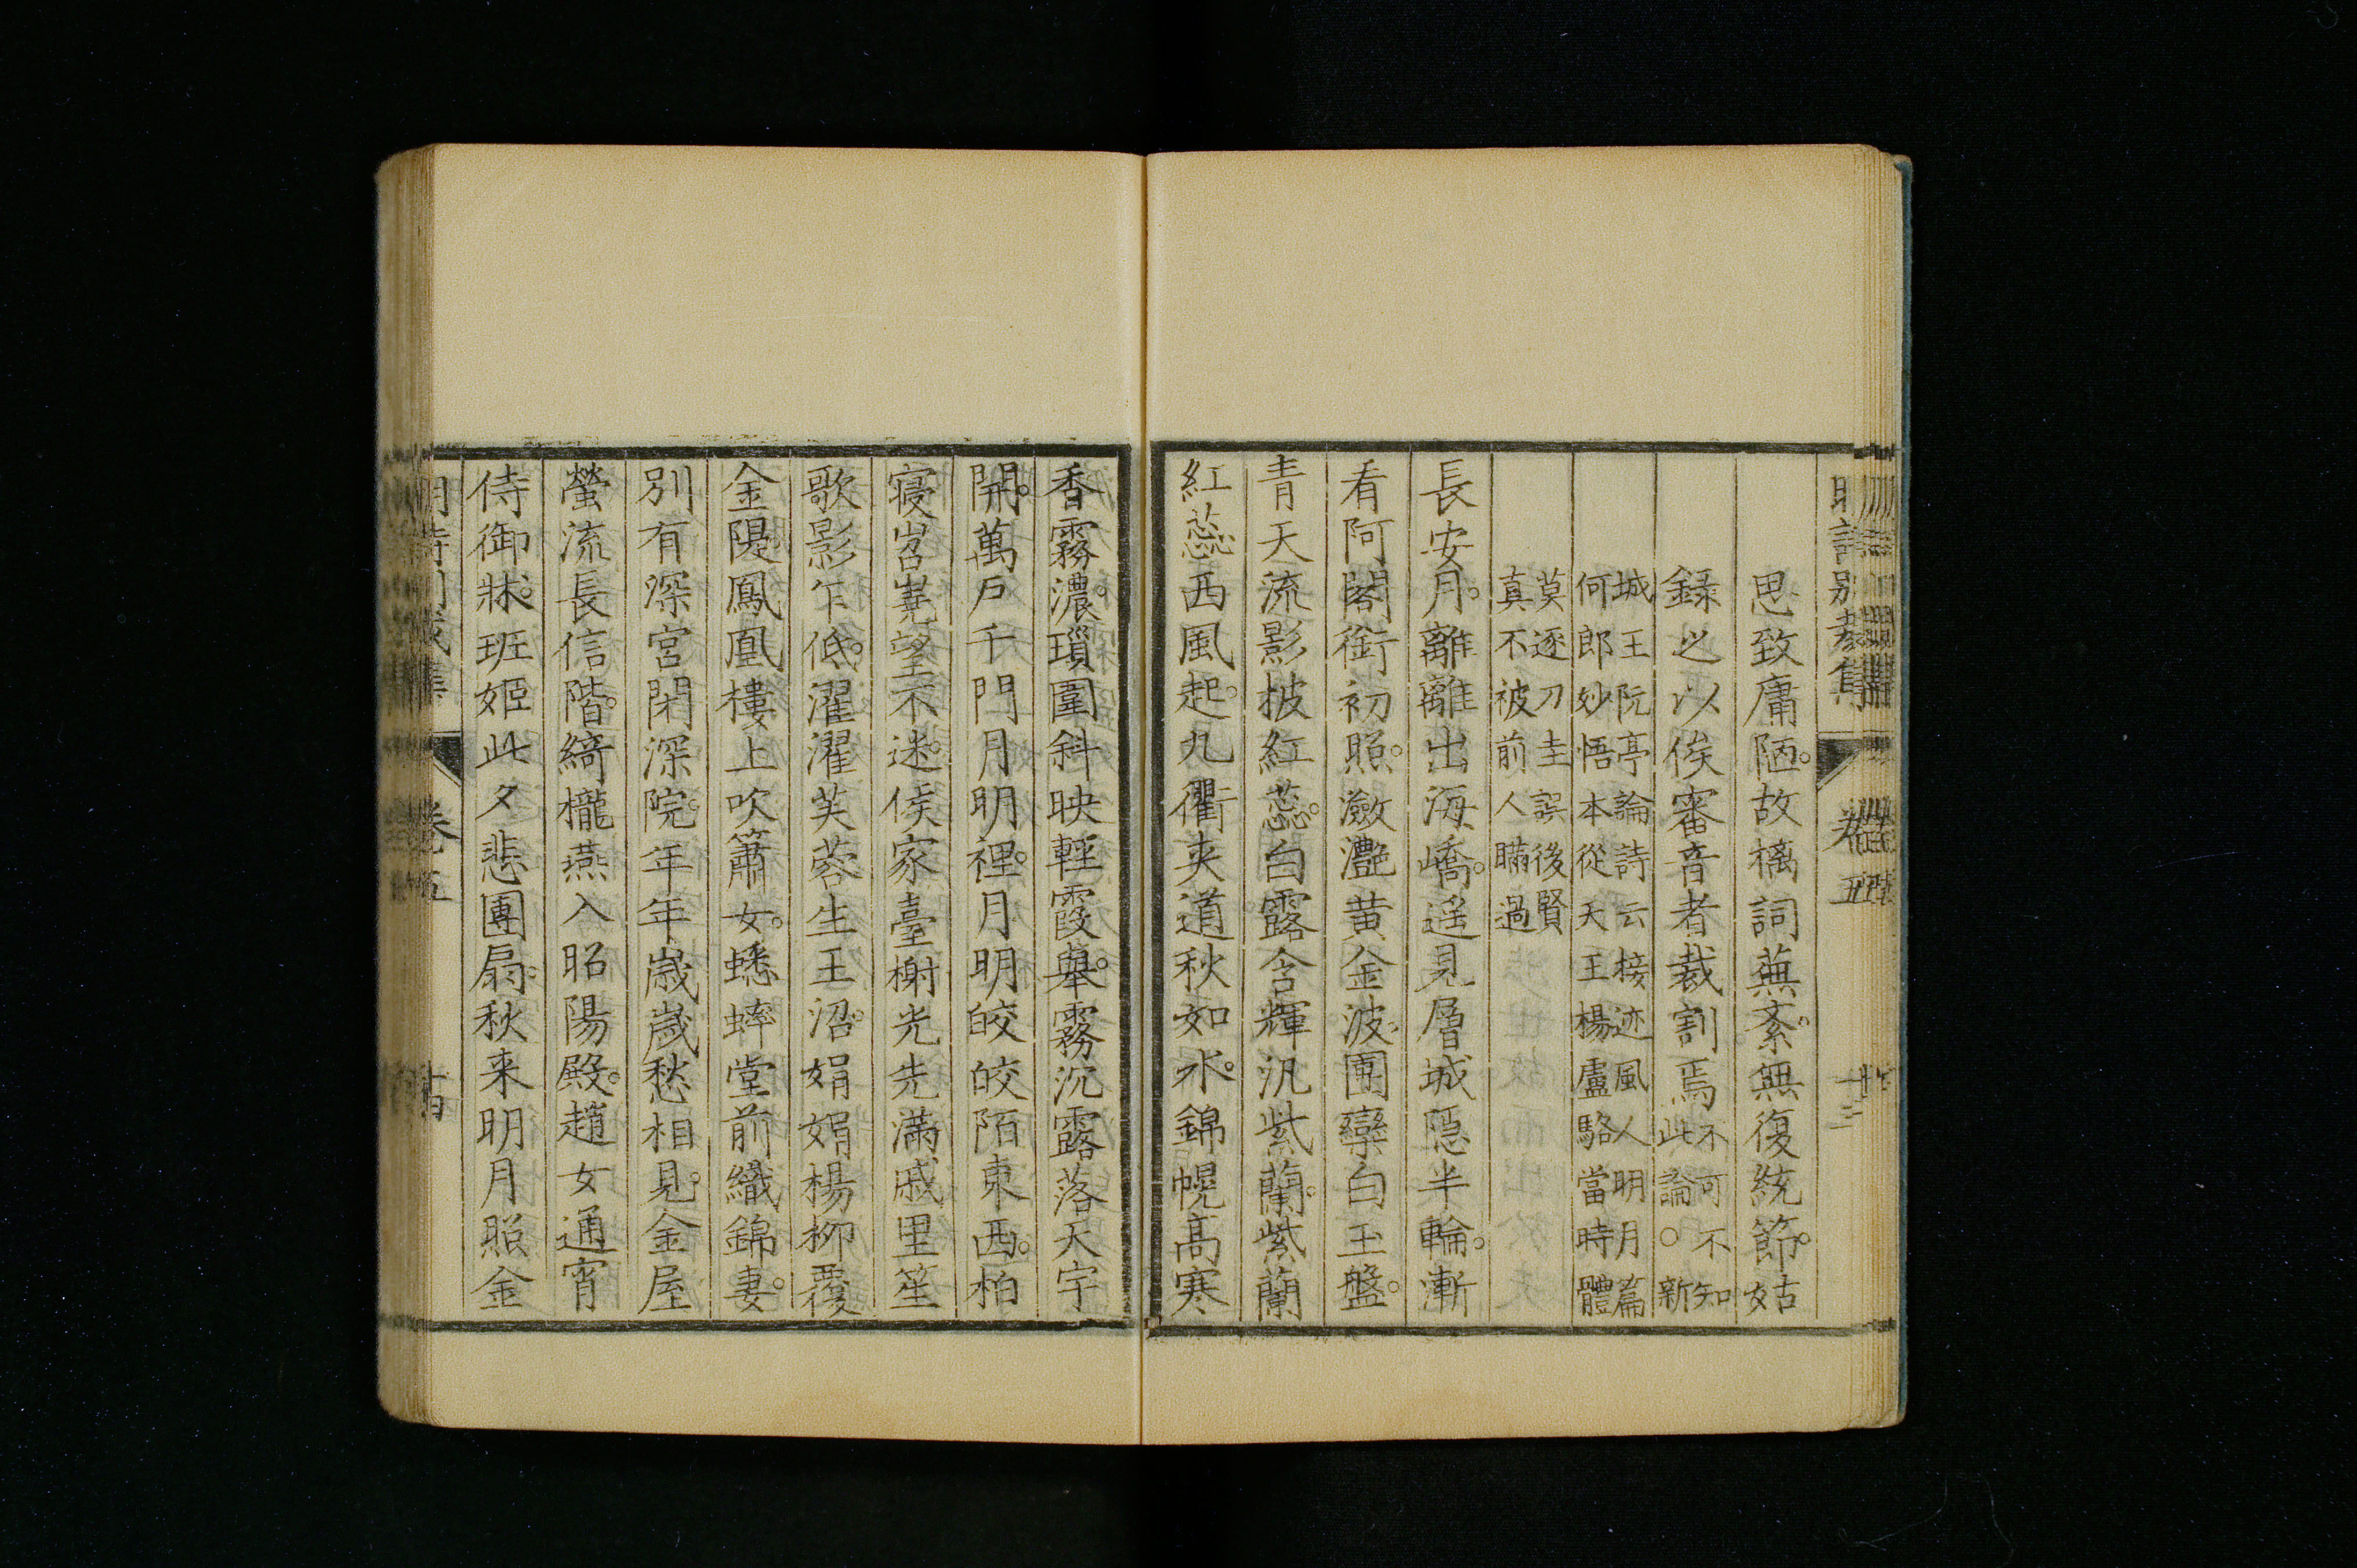 思致庸陋。故摛詞蕪紊。無復統節。姑
錄之以俟審音者裁割焉
不可不知
此論。○新
城王阮亭論詩云接迹風人明月篇
何郎妙悟本從天王楊盧駱當時體
莫逐刀圭誤後賢
真不被前人瞞過
長安月。離離出海嶠。遥見層城隱半輪。漸
看阿閣銜初照。瀲灩黃金波。團欒白玉盤。
青天流影披紅蕊。白露含輝汎紫蘭。紫蘭
紅蕊西風起。九衢夾道秋如水。錦幌高寒
香霧濃。瑣圍斜映輕霞擧。霧沉露落天宇
開。萬戸千門月明裡。月明皎皎陌東西。柏
寝岧嶤望不迷。侯家臺榭光先滿戚里笙
歌影乍低。濯濯芙蓉生玉沼。娟娟楊柳覆
金隄。鳳凰樓上吹簫女。蟋蟀堂前織錦妻。
别有深宮閉深院。年年歲歲愁相見。金屋
螢流長信階。綺櫳燕入昭陽殿。趙女通宵
侍御牀。班姬此夕悲團扇。秋来明月照金
卷五